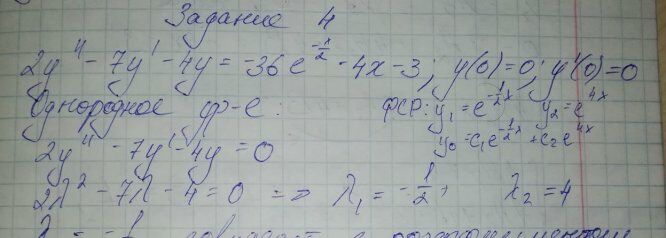 Задание 4
2y'' - 7y' - 4y = -36e^{-x/2} - 4x - 3; y(0)=0; y'(0)=0
Однородное ур-е: ФСР: y₁ = e^{-1/2 x} y₂ = e^{4x}
2y'' - 7y' - 4y = 0 y₀ = C₁e^{-1/2 x} + C₂e^{4x}
2λ² - 7λ - 4 = 0 => λ₁ = -1/2, λ₂ = 4